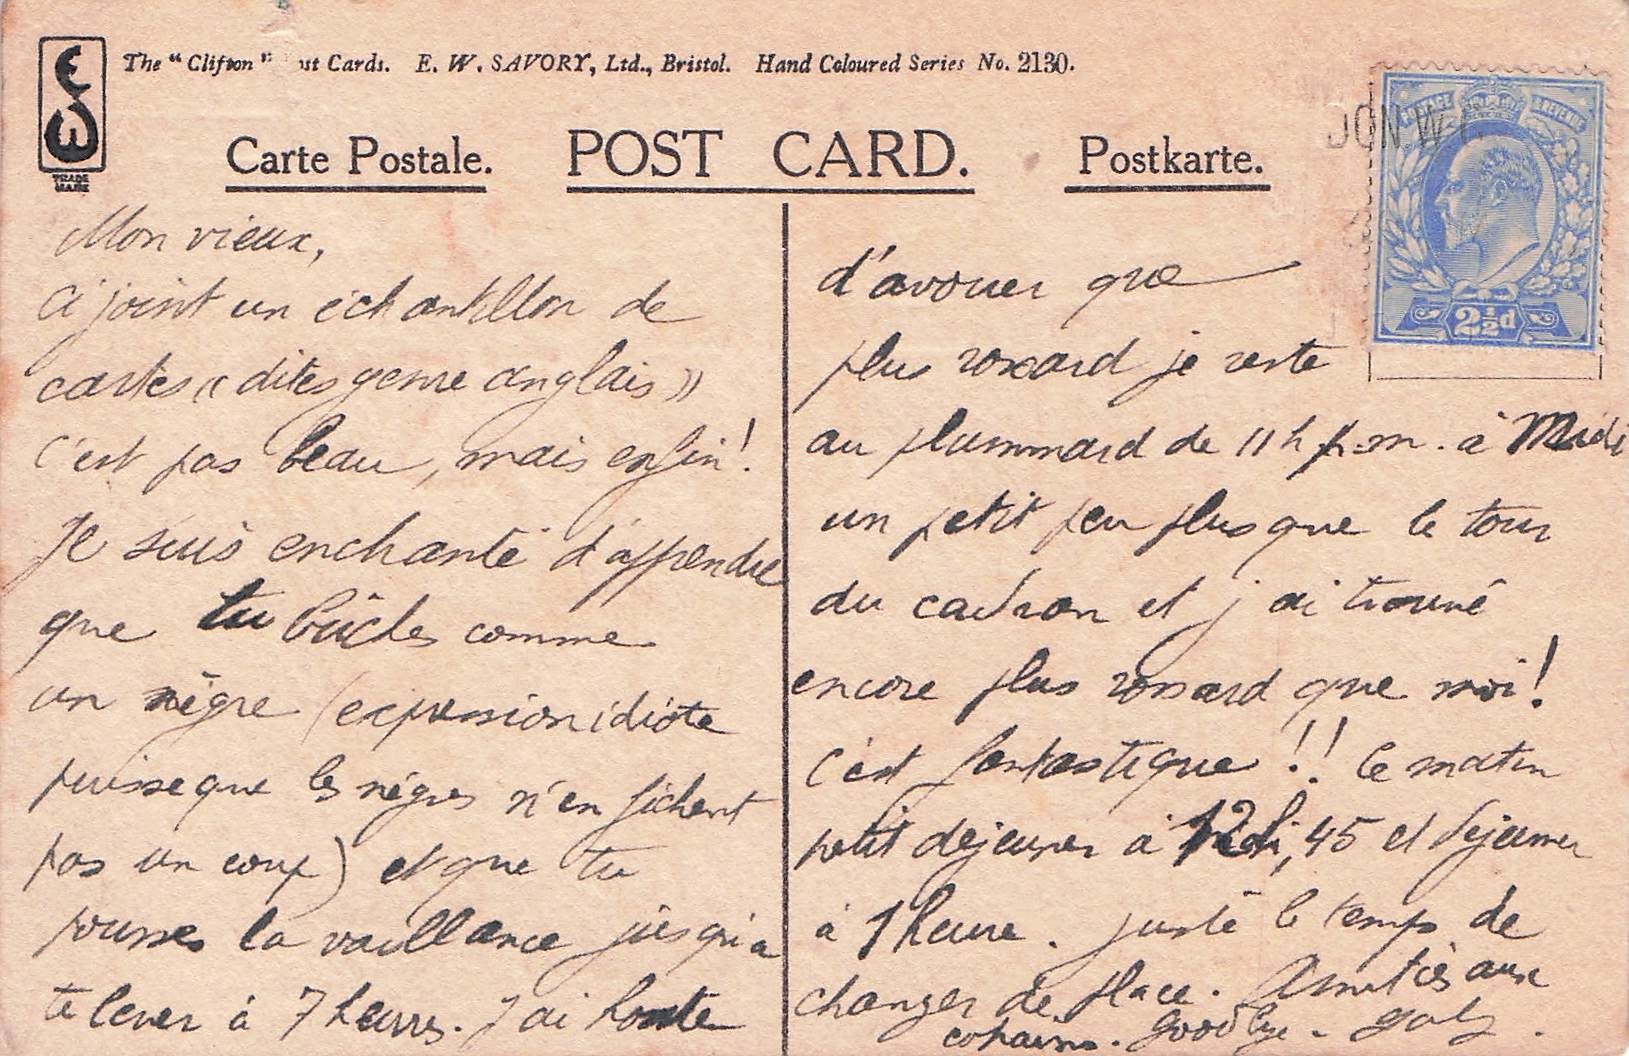 The "Clifton" Post Cards. E. W. SAVORY, Ltd., Bristol. Hand Coloured Series No. 2130.
TRADE
MARK
Carte Postale. POST CARD. Postkarte.
POSTAGE & REVENUE
2½d
Mon vieux,
Ci joint un échantillon de
cartes « dites genre anglais »
c'est pas beau, mais enfin!
Je suis enchanté d'apprendre
que tu bûches comme
un nègre (expression idiote
puisse que les nègres n'en fichent
pas un coup) et que tu
pousses la vaillance jusqu'a
te lever à 7 heures. J'ai honte
d'avouer que
plus rossard je reste
au plummard de 11 h p.m. à Midi
un petit peu plus que le tour
du cadran et j'ai trouvé
encore plus rossard que moi!
c'est fantastique!! Ce matin
petit dejeuner à 12h,45 et dejeuner
à 1 heure. Juste le temps de
changer de place. Amitiés aux
copains. Goodbye -